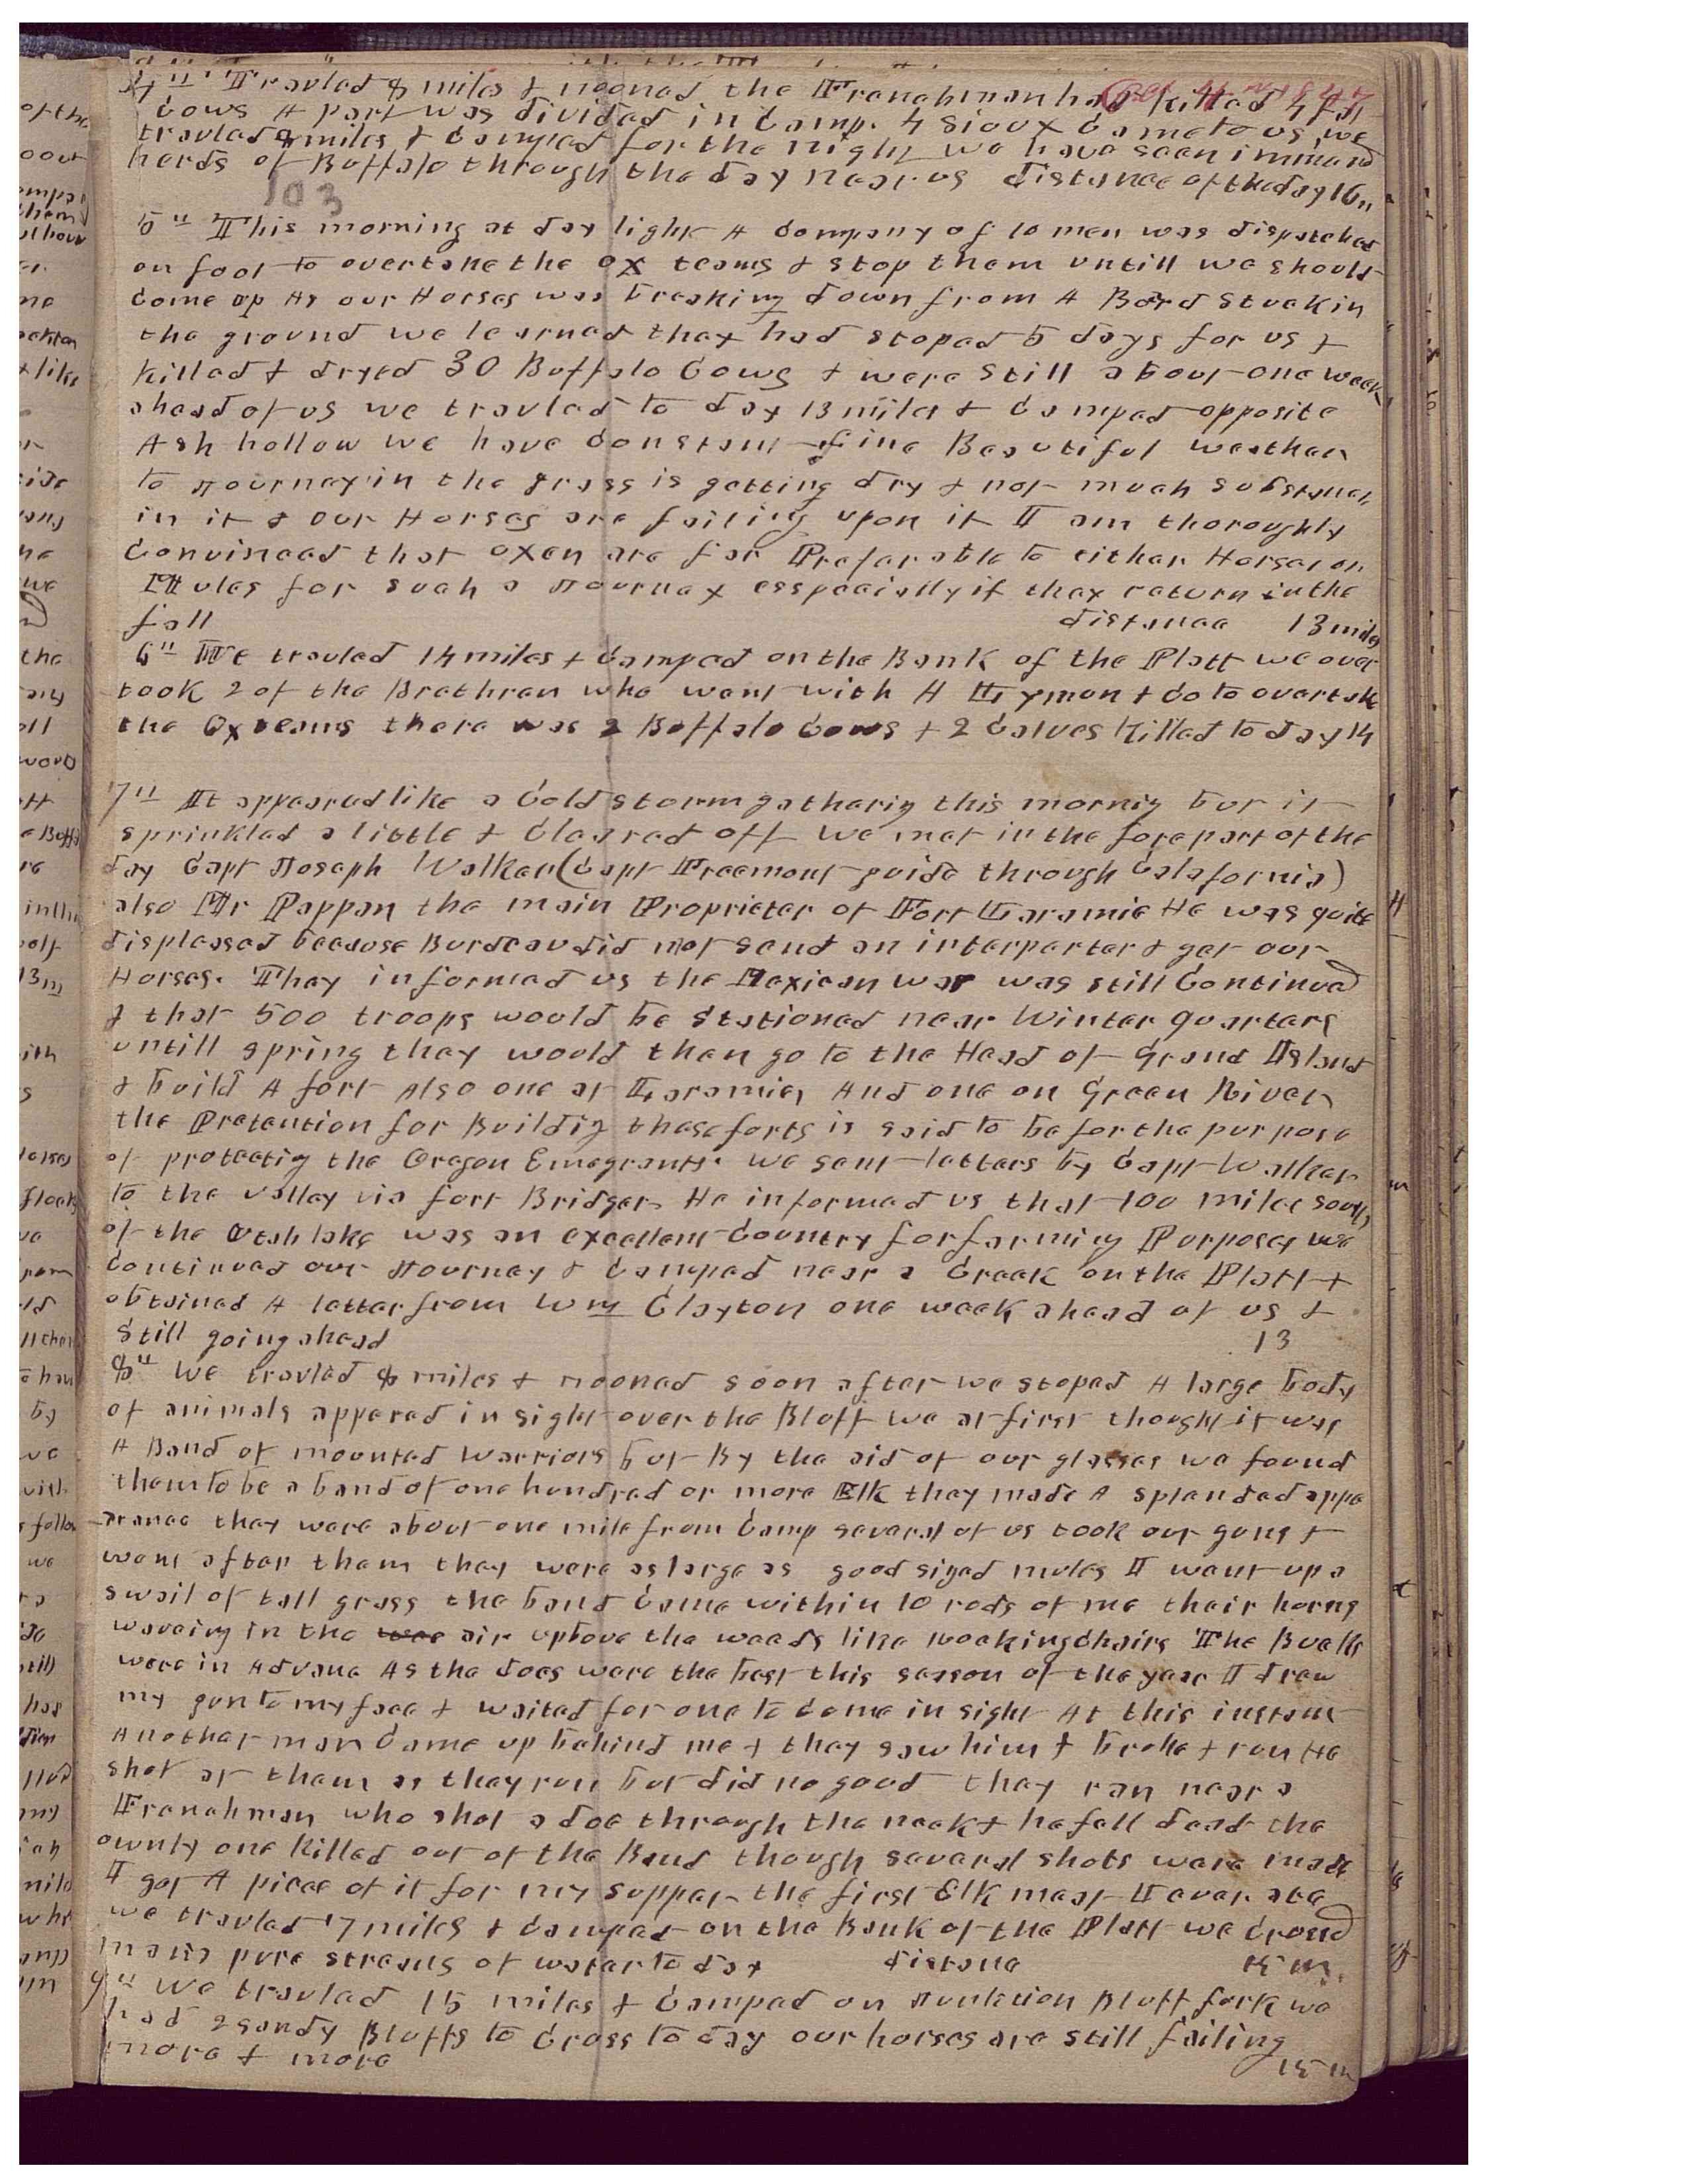 4" Travled 8 miles & nooned the Frenchman had killed 4 fat
Cows A part was divided in Camp. 4 Sioux Came to us, we
travled 8 miles & Camped for the night we have seen immens
herds of Buffalo through the day near us distance of the day 16 m
103
5" This morning at day light A Company of 10 men was dispatched
on foot to overtake the ox teams & stop them untill we should
Come up As our Horses was breaking down from A
the ground we learned they had stoped 5 days for us &
killed & dryed 30 Buffalo Cows & were still about one week
ahead of us we travled to day 13 miles & Camped opposite
Ash hollow We have Constant fine Beautiful weather
to Journey in the grass is getting dry & not much substance
in it & our Horses are failing upon it I am thoroughly
Convinced that oxen are far Preferable to either Horses or
Mules for such a Journey esspecially if they return in the
fall distance 13 miles
6" We travled 14 miles & Camped on the Bank of the Platt we over
took 2 of the Brethren who went with A Lyman & Co to overtake
the Ox teams there was 2 Buffalo Cows & 2 Calves killed to day 14
7" It appeared like a Cold storm gatherig this mornig but it
sprinkled a little & Cleared off We met in the forepart of the
day Capt Joseph Walker (Capt Freemont guide through Calafornia)
also Mr Pappan the main Proprieter of Fort Laramie He was quite
displeased because Burdeau did not send an interparter & get our
Horses. They informed us the Mexican war was still Continued
& that 500 troops would be stationed near Winter quarters
untill spring they would then go to the Head of Grand Island
& build A fort Also one at Laramie, And one on Green River
the Pretention for Buildig these forts is said to be for the purpose
of protectig the Oregon Emegrants. we sent letters by Capt Walker
to the valley via fort Bridger He informed us that 100 miles south
of the Utah lake was an excellent Country for farming Purposes we
Continued our Journey & Camped near a Creek on the Platt &
obtained A letter from Wm Clayton one week ahead of us &
Still going ahead 13
8" We travled 8 miles & nooned soon after we stoped A large body
of animals appered in sight over the Bluff we at first thought it was
A Band of mounted warriors but By the aid of our glasses we found
them to be a band of one hundred or more Elk they made A splended appe
arance they were about one mile from Camp several of us took our guns &
went after them they were as large as good sized mules I went up a
swail of tall grass the band Came within 10 rods of me their horns
waveing in the air upbove the weeds like rocking chairs The Bucks
were in Advanc As the does were the best this season of the year I drew
my gun to my face & waited for one to Come in sight At this instant
Another man Came up behind me & they saw him & broke & run He
shot at them as they run but did no good they ran near a
Frenchman who shot a doe through the neck & he fell dead the
ownly one killed out of the Band though several shots were made
I got A piece of it for my supper the first Elk meat I ever ate
we travled 7 miles & Camped on the Bank of the Platt we Crossed
many pure streams of water to day distanc 15 m.
9" We travled 15 miles & Camped on Junction Bluff fork we
had 2 sandy Bluffs to Cross to day our horses are still failing
more & more 15 m